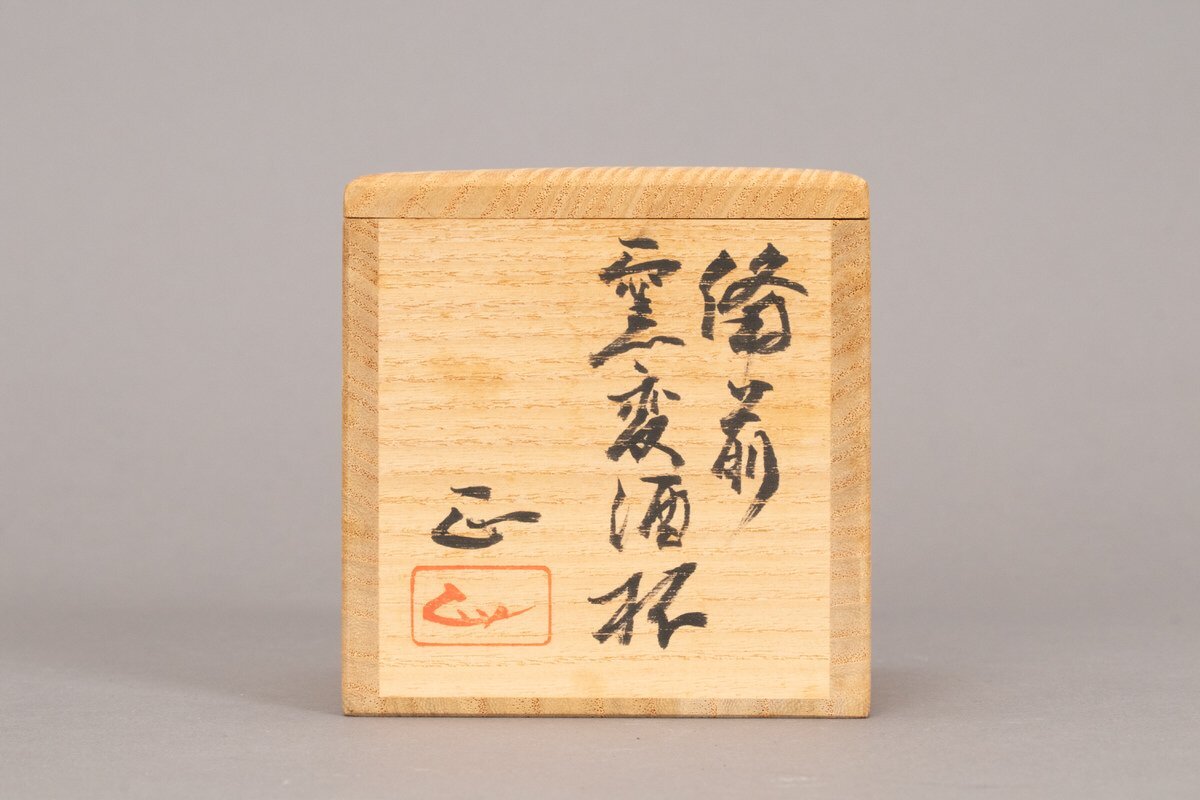 備前
窯変酒杯
正